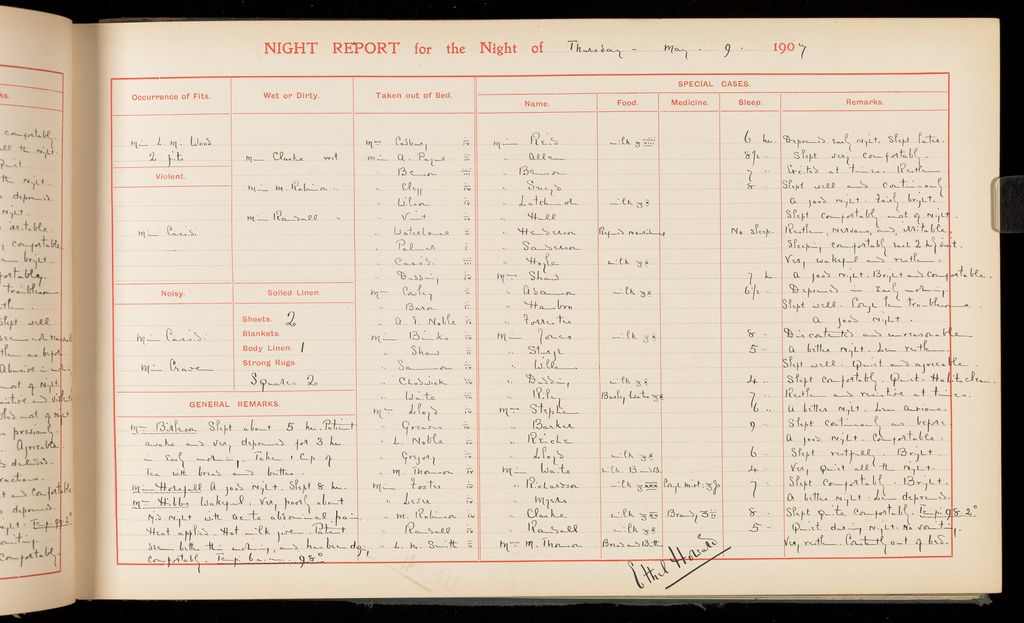 NIGHT REPORT for the Night of Thursday - May. 9. 1907
SPECIAL CASES.
Occurrence of Fits. Wet or Dirty. Taken out of Bed. Name. Food. Medicine. Sleep. Remarks.
Miss L. M. Wood
2 fits
Miss Clarke wet
Violent.
Miss M. Robinson "
Miss Ransall "
Miss Cassidi
Noisy.
Miss Cassidi
Miss Craven
Soiled Linen.
Sheets. 2
Blankets.
Body Linen. 1
Strong Rugs.
Squares 2
Mrs Cadbury
Miss A. Payne
" Benson
" Clegg
" Wilson
" Vint
" Waterhouse
" Palmer
" Cassidi
" Dussing
Mrs Corley
" Baron
" A. E. Noble
Miss Binks
" Shaw
" Samson
" Chadwick
" Waite
Mrs Lloyd
" Greaves
" L. Noble
" Gregory
" M. Thomson
Miss Foster
" Lever
" M. Robinson
" Ransall
" L. M. Smith
Miss Reid milk 6 hrs. Depressed early night. Slept later.
" Allen 8½ " Slept very comfortably.
" Benson 7 " Excited at times. Restless
" Sneyd 8 " Slept well and continuously
" Latchmore milk A good night. Fairly bright.
" Hull Slept comfortably most of night.
" Henderson Refused nourishment No sleep. Restless, nervous, and irritable.
" Sanderson Sleeping comfortably each 2 hrly visit.
" Hoyle milk Very wakeful and restless.
Mrs Shaw 7 hrs A good night. Bright and comfortable.
" Adamson milk 6½ " Depressed in early morning.
" Hambro Slept well. Cough less troublesome
" Forrester A good night.
Miss Jones milk 8 " Discontented and unreasonable
" Sturge 5 " A better night. Less restless.
" Williams Slept well. Quiet and agreeable
" Dussing milk 4 " Slept comfortably. Quiet. Habits clean.
" Riley Barley Water 7 " Restless and resistive at times.
Mrs Stephen 6 " A better night. Less anxious.
" Barker 9 " Slept continuously as before.
" Reiche A good night. Comfortable.
" Lloyd milk 6 " Slept restfully. Bright.
Miss Waite milk. B and B. 4 " Very quiet all the night.
" Richardson milk Cough mist. 7 " Slept comfortably. Bright.
" Myers A better night. Less depressed.
" Clarke milk Brandy 8 " Slept quite comfortably. Temp: 98.2°
" Ransall milk 5 " Quiet during night. No vomiting.
Mrs M. Thomson Bread and Butter Very restless. Constantly out of bed.
GENERAL REMARKS.
Mrs Birleson Slept about 5 hrs. Patient
awake and very depressed for 3 hrs.
in early morning. Taken 1 cup of
Tea with bread and butter.
Miss Horsfall A good night. Slept 8 hrs.
Mrs Hibbs Wakeful. Very poorly about
mid night with acute abdominal pain,
Heat applied. Hot milk given. Patient
seems better this morning, and has been dozing
comfortably. Temp: 6 a.m. 98°
Ethel Howard